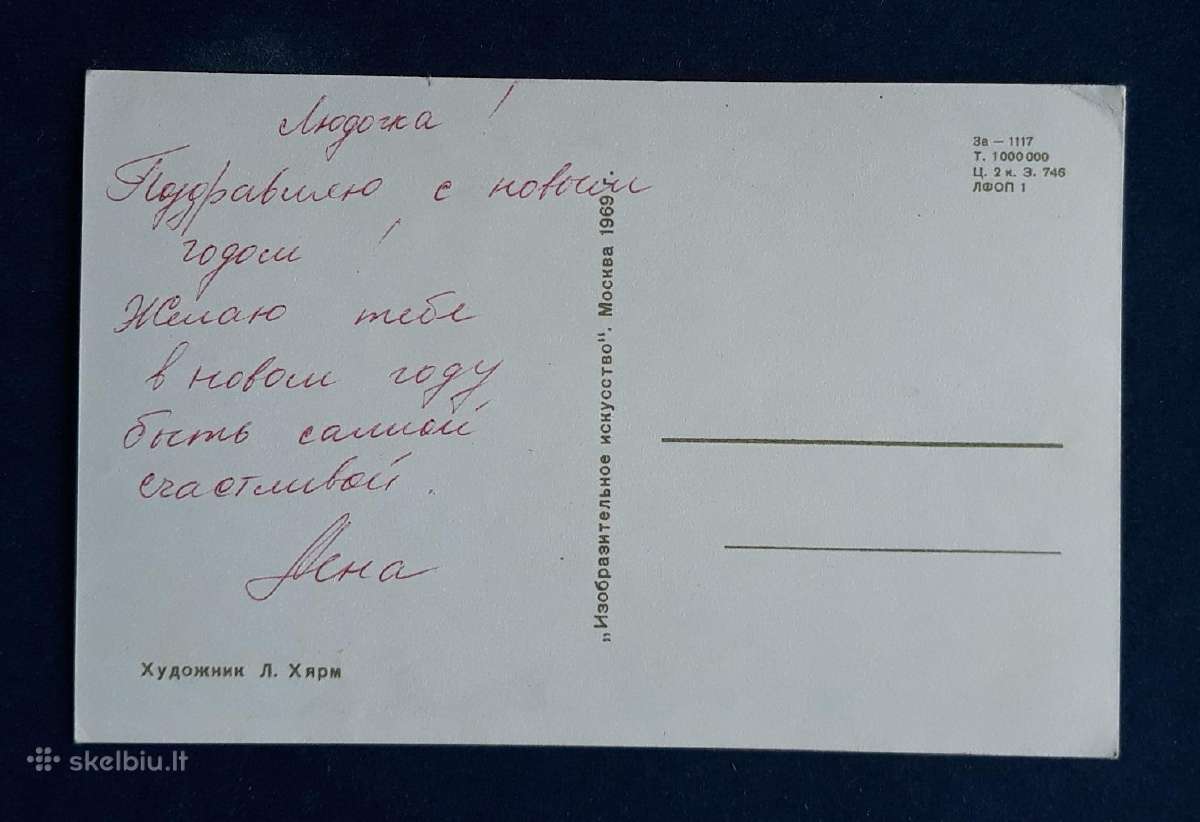 Людочка!
Поздравляю с новым
годом!
Желаю тебе
в новом году
быть самой
счастливой.
Лена
Художник Л. Хярм
„Изобразительное искусство". Москва 1969 г.
За — 1117
Т. 1 000 000
Ц. 2 к. Э. 746
ЛФОП 1
skelbiu.lt